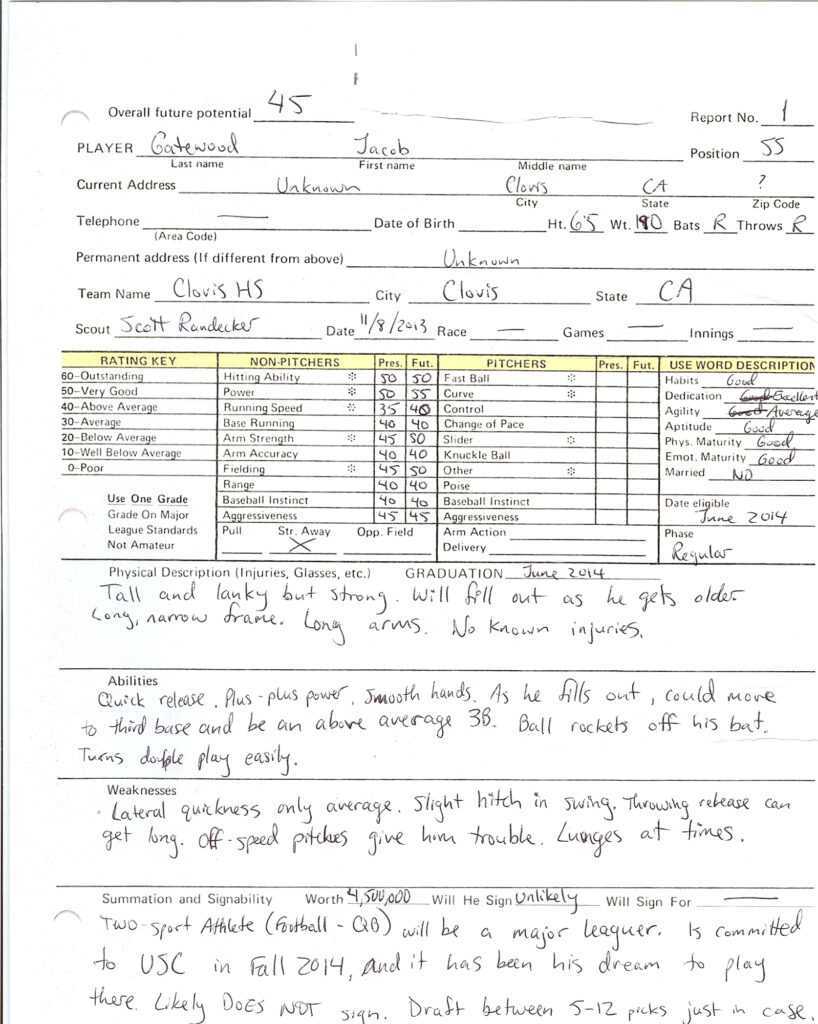 Overall future potential 45 Report No. 1
PLAYER Gatewood Jacob Position SS
Last name First name Middle name
Current Address Unknown Clovis CA ?
City State Zip Code
Telephone — Date of Birth Ht. 6'5 Wt. 190 Bats R Throws R
(Area Code)
Permanent address (If different from above) Unknown
Team Name Clovis HS City Clovis State CA
Scout Scott Randecker Date 11/8/2013 Race — Games — Innings —
RATING KEY NON-PITCHERS Pres. Fut. PITCHERS Pres. Fut. USE WORD DESCRIPTION
60–Outstanding Hitting Ability * 50 50 Fast Ball * Habits Good
50–Very Good Power * 50 55 Curve * Dedication Good Excellent
40–Above Average Running Speed * 35 40 Control Agility Good Average
30–Average Base Running 40 40 Change of Pace Aptitude Good
20–Below Average Arm Strength * 45 50 Slider * Phys. Maturity Good
10–Well Below Average Arm Accuracy 40 40 Knuckle Ball Emot. Maturity Good
0–Poor Fielding * 45 50 Other * Married NO
Range 40 40 Poise
Use One Grade Baseball Instinct 40 40 Baseball Instinct Date eligible
Grade On Major Aggressiveness 45 45 Aggressiveness June 2014
League Standards Pull Str. Away Opp. Field Arm Action Phase
Not Amateur X Delivery Regular
Physical Description (Injuries, Glasses, etc.) GRADUATION June 2014
Tall and lanky but strong. Will fill out as he gets older.
Long, narrow frame. Long arms. No known injuries.
Abilities
Quick release. Plus-plus power. Smooth hands. As he fills out, could move
to third base and be an above average 3B. Ball rockets off his bat.
Turns double play easily.
Weaknesses
Lateral quickness only average. Slight hitch in swing. Throwing release can
get long. Off-speed pitches give him trouble. Lunges at times.
Summation and Signability Worth 4,500,000 Will He Sign Unlikely Will Sign For —
Two-sport Athlete (Football - QB) will be a major leaguer. Is committed
to USC in Fall 2014, and it has been his dream to play
there. Likely DOES NOT sign. Draft between 5-12 picks just in case.